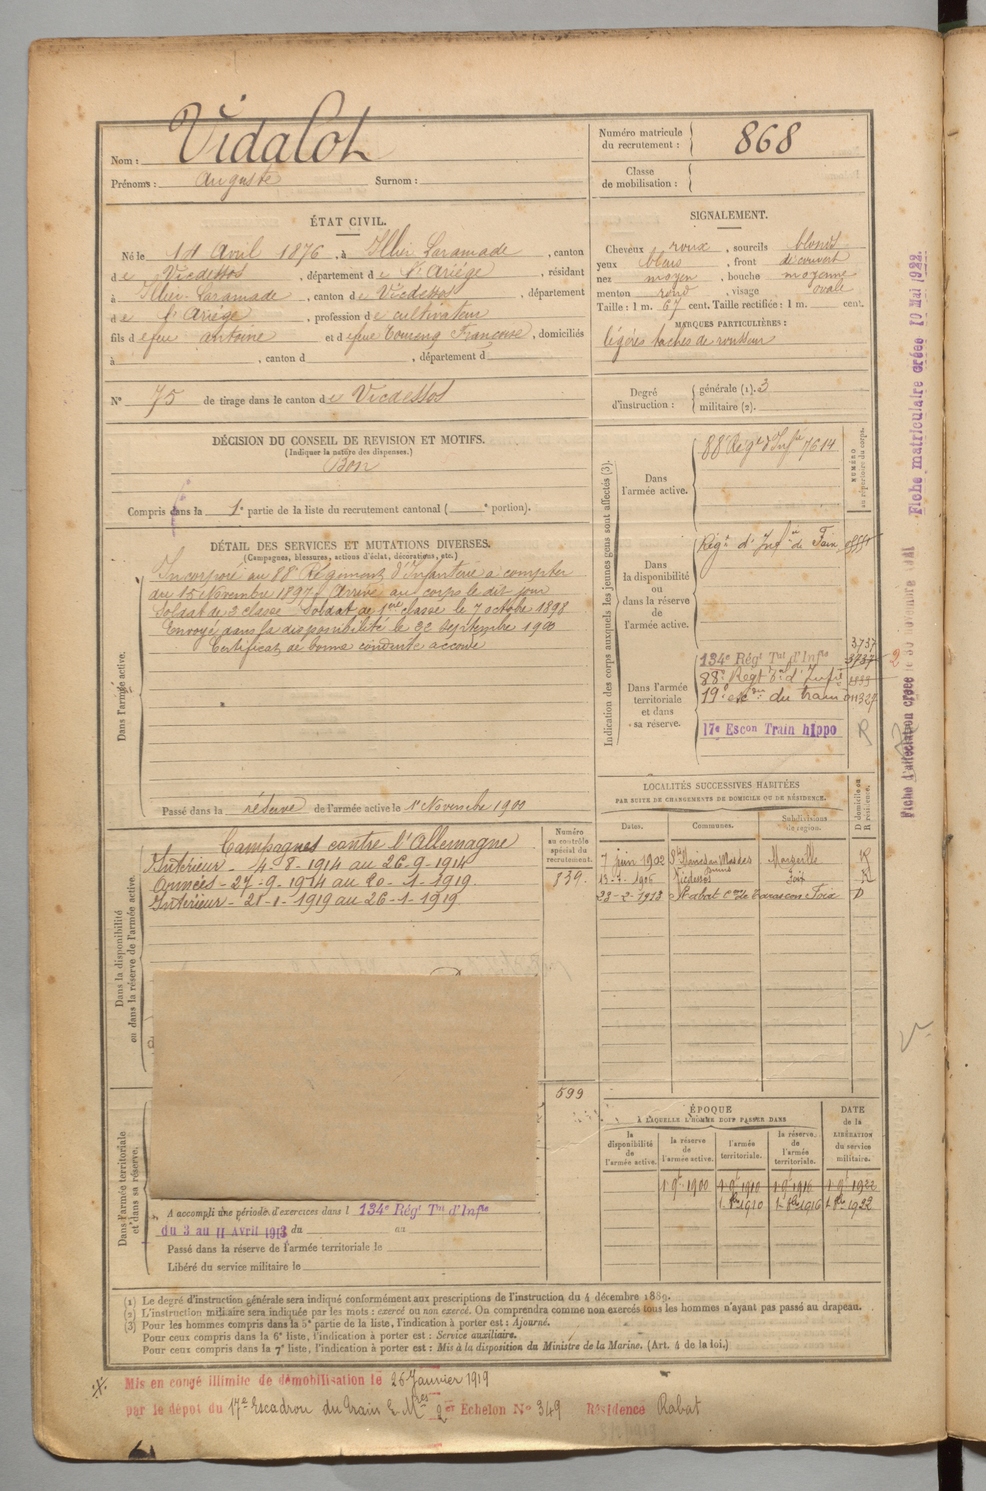 Nom : Vidalot
Prénoms : Auguste Surnom :
Numéro matricule du recrutement : 868
Classe de mobilisation :
ÉTAT CIVIL.
Né le 14 Avril 1876, à Illier Laramade, canton
de Vicdessos, département de l'Ariége, résidant
à Illier-Laramade, canton de Vicdessos, département
de l'Ariége, profession de cultivateur
fils de feu antoine et de feue Françoise, domiciliés
à , canton d , département d
N° 75 de tirage dans le canton de Vicdessos
SIGNALEMENT.
Cheveux roux, sourcils blonds
yeux bleus, front découvert
nez moyen, bouche moyenne
menton rond, visage ovale
Taille : 1 m. 67 cent. Taille rectifiée : 1 m. cent.
MARQUES PARTICULIÈRES :
légères taches de rousseur
Degré d'instruction : générale (1). 3
militaire (2).
DÉCISION DU CONSEIL DE REVISION ET MOTIFS.
(Indiquer la nature des dispenses.)
Bon
Compris dans la 1e partie de la liste du recrutement cantonal ( e portion).
DÉTAIL DES SERVICES ET MUTATIONS DIVERSES.
(Campagnes, blessures, actions d'éclat, décorations, etc.)
Dans l'armée active.
Incorporé au 88 Régiment d'Infanterie à compter
du 15 Novembre 1897. Arrivé au corps le dit jour
Soldat de 2 classe Soldat de 1ère classe le 7 octobre 1898
Envoyé dans la disponibilité le 22 Septembre 1900
Certificat de bonne conduite accordé
Passé dans la réserve de l'armée active le 1er Novembre 1900
Dans la disponibilité ou dans la réserve de l'armée active.
Campagnes contre l'Allemagne
Intérieur - 4-8-1914 au 26-9-1914
Armées - 27-9-1914 au 20-1-1919
Intérieur - 21-1-1919 au 26-1-1919
Numéro au contrôle spécial du recrutement.
839.
599
Dans l'armée territoriale et dans sa réserve.
A accompli une période d'exercices dans l 134e Régt Tal d'Infie
du 3 au 11 Avril 1913 du au
Passé dans la réserve de l'armée territoriale le
Libéré du service militaire le
Indication des corps auxquels les jeunes gens sont affectés (3).
NUMÉRO au répertoire du corps.
Dans l'armée active.
88 Régt d'Infie 7614
Dans la disponibilité ou dans la réserve de l'armée active.
Régt d'Infie de Foix
Dans l'armée territoriale et dans sa réserve.
3737
134e Régt Tal d'Infie 3737
88e Régt Tal d'Infie
19e du train
17e Escon Train hippo R
LOCALITÉS SUCCESSIVES HABITÉES
PAR SUITE DE CHANGEMENTS DE DOMICILE OU DE RÉSIDENCE.
Dates. Communes. Subdivisions de région. D domicile ou R résidence.
7 Juin 1902 Marseille R
Vicdessos Foix R
23-2-1923 Rabat Foix D
ÉPOQUE
À LAQUELLE L'HOMME DOIT PASSER DANS
la disponibilité de l'armée active.
la réserve de l'armée active.
l'armée territoriale.
la réserve de l'armée territoriale.
DATE de la LIBÉRATION du service militaire.
1 9bre 1900 1 9bre 1910 1 9bre 1916 1 9bre 1922
1 8bre 1910 1 8bre 1916 1 8bre 1922
(1) Le degré d'instruction générale sera indiqué conformément aux prescriptions de l'instruction du 4 décembre 1889.
(2) L'instruction militaire sera indiquée par les mots : exercé ou non exercé. On comprendra comme non exercés tous les hommes n'ayant pas passé au drapeau.
(3) Pour les hommes compris dans la 5e partie de la liste, l'indication à porter est : Ajourné.
Pour ceux compris dans la 6e liste, l'indication à porter est : Service auxiliaire.
Pour ceux compris dans la 7e liste, l'indication à porter est : Mis à la disposition du Ministre de la Marine. (Art. 4 de la loi.)
Mis en congé illimité de démobilisation le 26 Janvier 1919
par le dépôt du 17e Escadron du train 2e Echelon N° 349 Résidence Rabat
Fiche matriculaire créée 10 Mai 1922.
Fiche d'affectation créée le